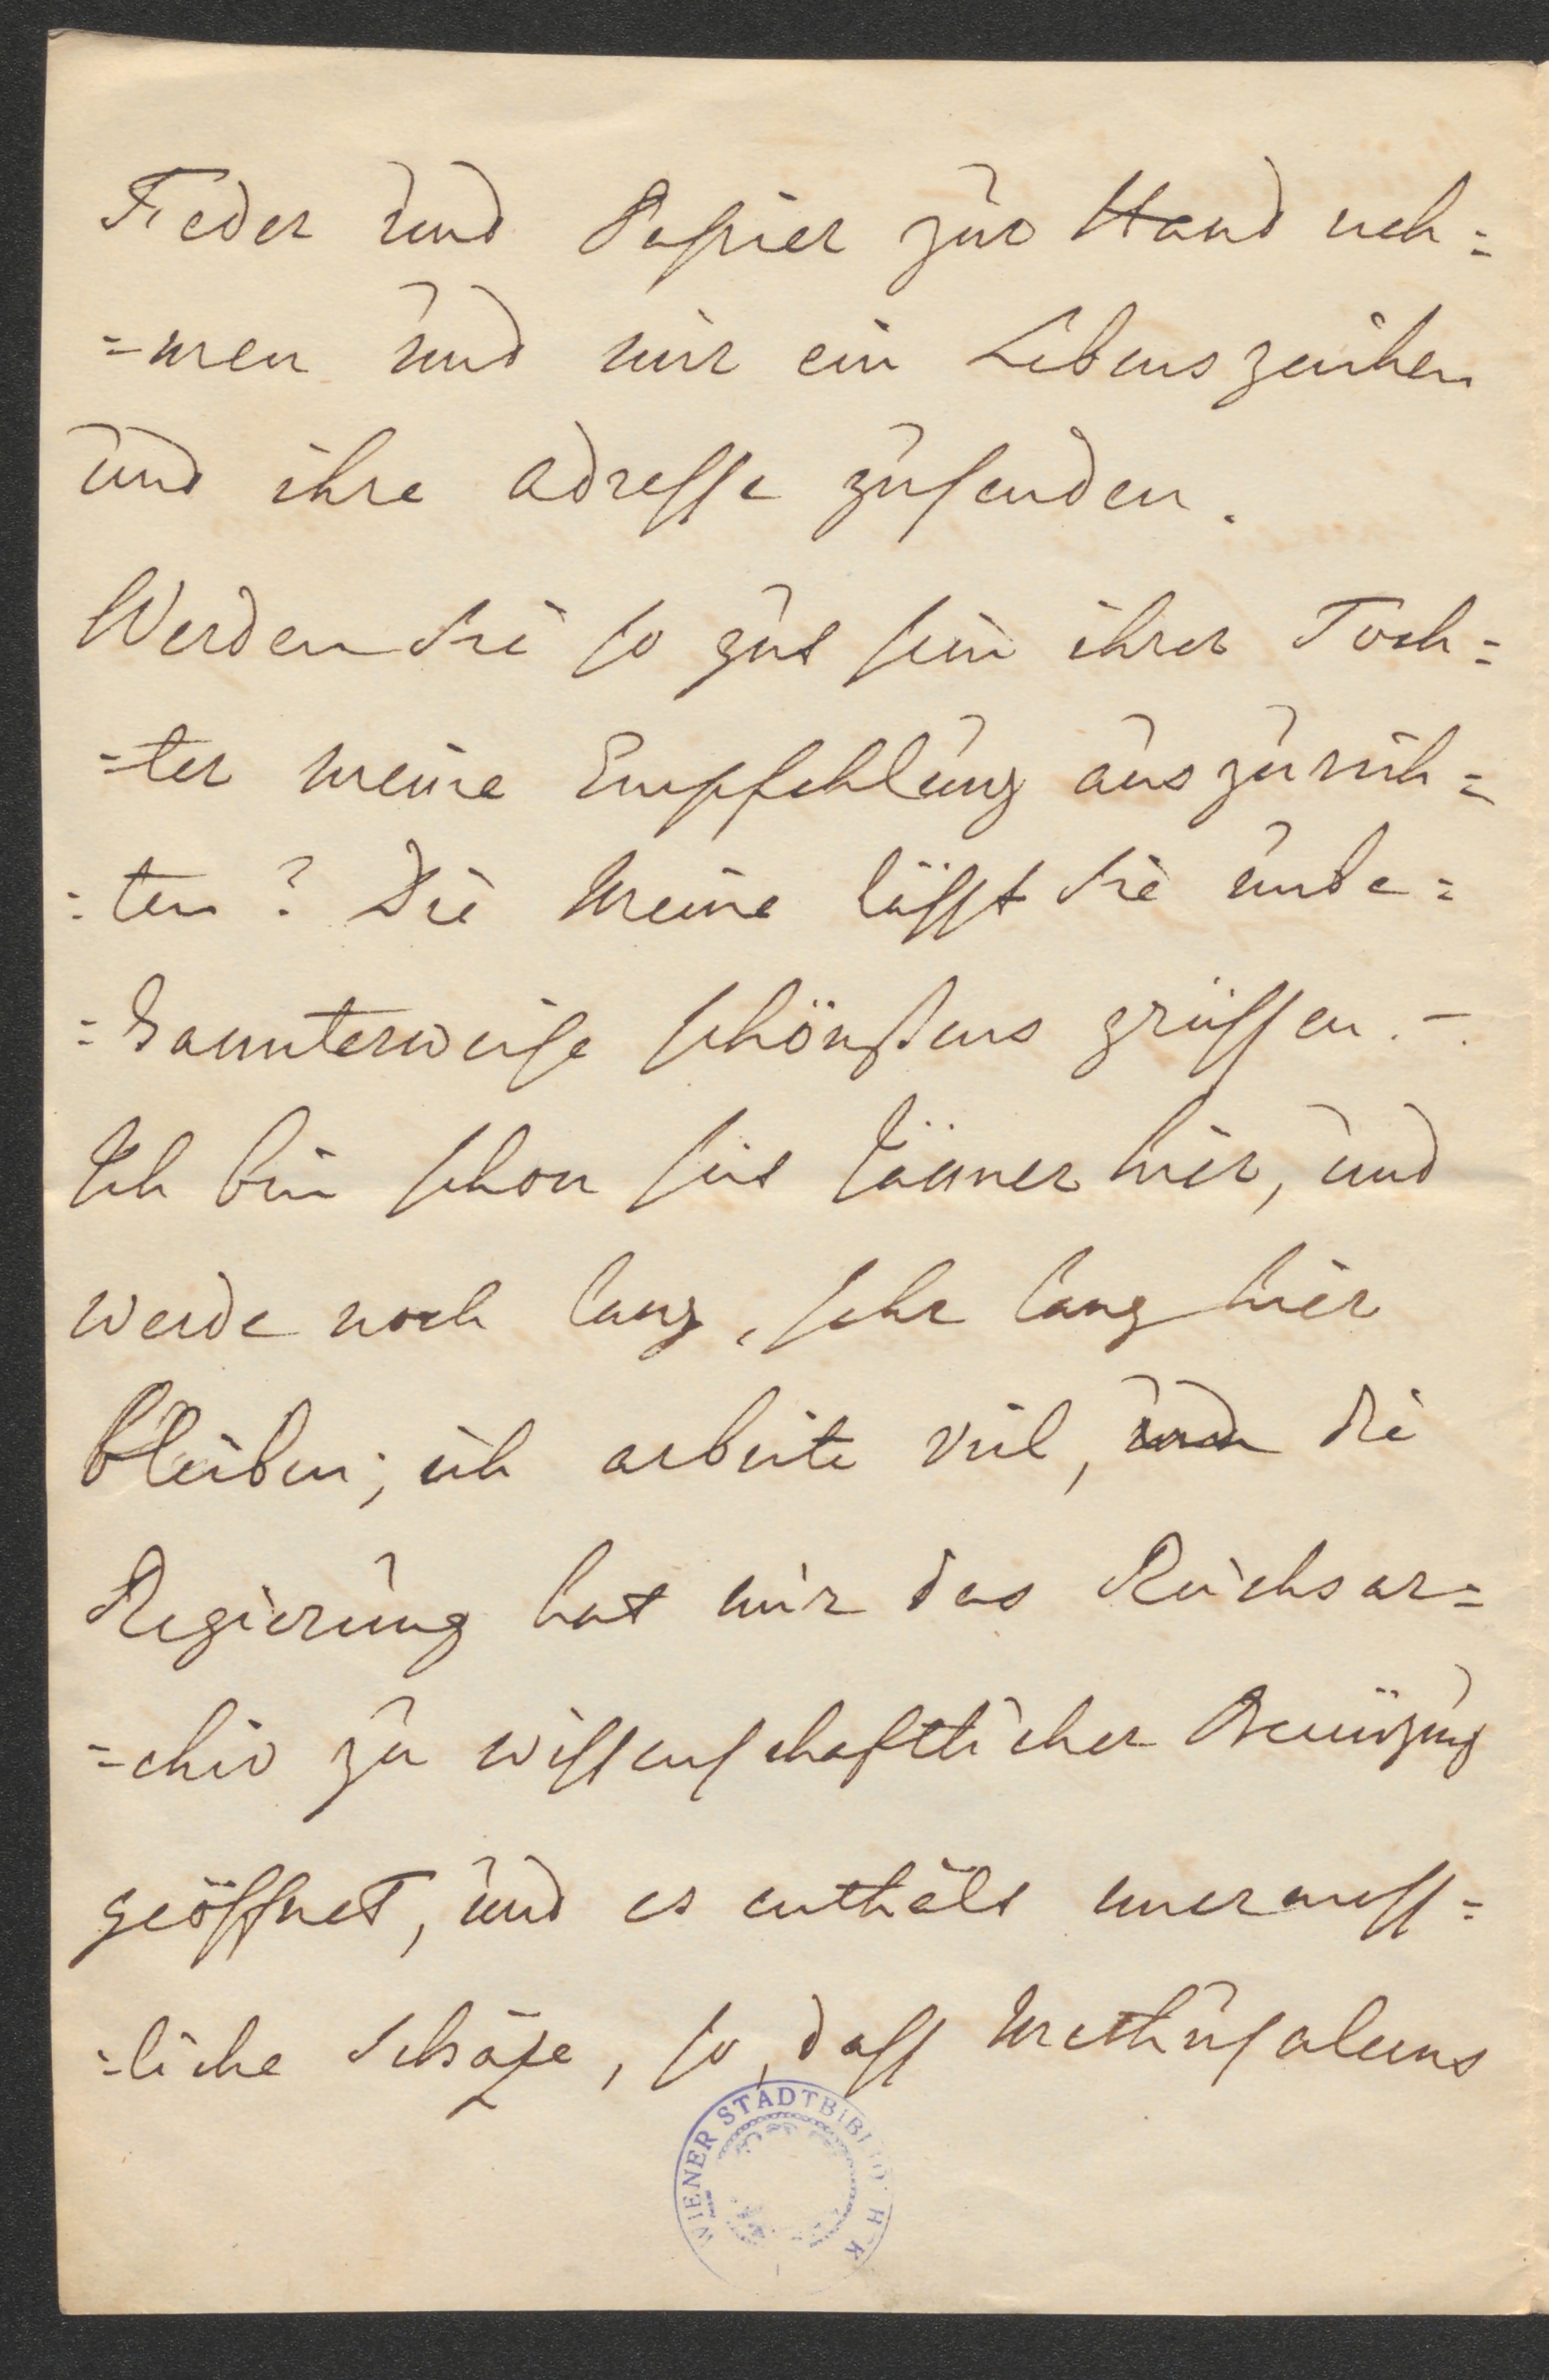 Feder und Papier zur Hand neh=
=men und mir ein Lebenszeichen
und ihre adresse zusenden.
Werden Sie so gut sein ihrer Toch=
=ter meine Empfehlung auszurich=
=ten? Die Meine läßt Sie unbe=
=kannterweise schönstens grüssen. –
Ich bin schon seit Jänner hier, und
werde noch lang, sehr lang hier
bleiben; ich arbeite viel, die
Regierung hat mir das Reichsar=
=chiv zu wissenschaftlicher Benüzung
geöffnet, und es enthält unermess=
=liche Schäze, so, dass Methusalems
WIENER STADTBIBLIOTHEK